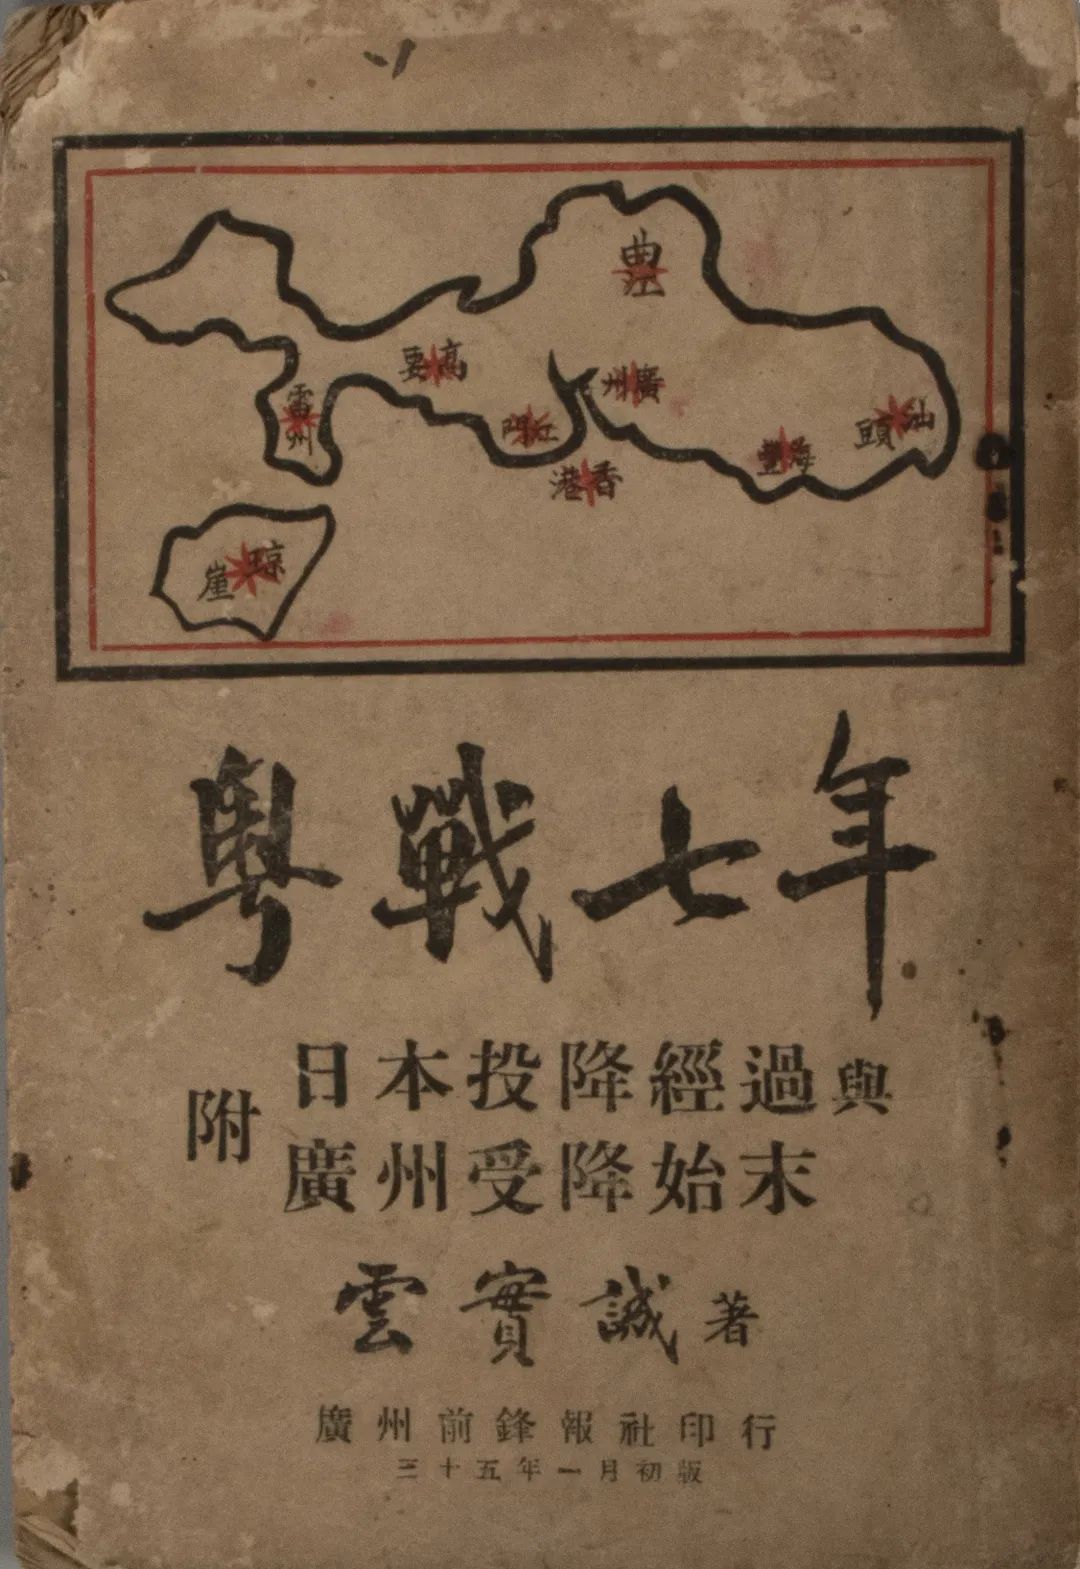 曲江
高要
廣州
雷州
江門
汕頭
海豐
香港
琼崖
粵戰七年
附
日本投降經過與
廣州受降始末
雲實誠著
廣州前鋒報社印行
三十五年一月初版